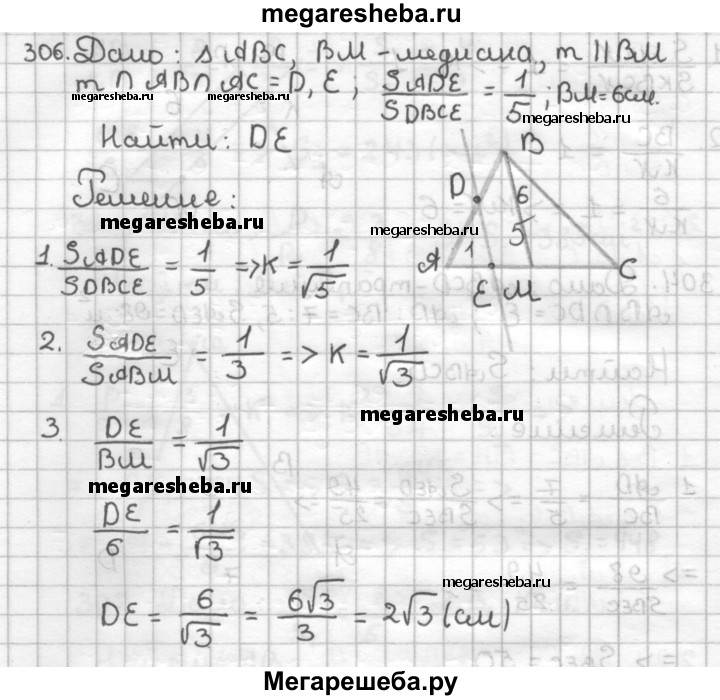 megaresheba.ru
306. Дано: △ABC, BM - медиана, m || BM
m ∩ AB ∩ AC = D, E; S ADE / S DBCE = 1/5; BM = 6см.
megaresheba.ru megaresheba.ru
megaresheba.ru
Найти: DE
Решение:
megaresheba.ru
megaresheba.ru
B
D
6
5
1
A
E M
C
1. S ADE / S DBCE = 1/5 => K = 1/√5
2. S ADE / S ABM = 1/3 => K = 1/√3
megaresheba.ru
3. DE/BM = 1/√3
megaresheba.ru
DE/6 = 1/√3
megaresheba.ru
DE = 6/√3 = 6√3/3 = 2√3 (см)
Мегарешеба.ру